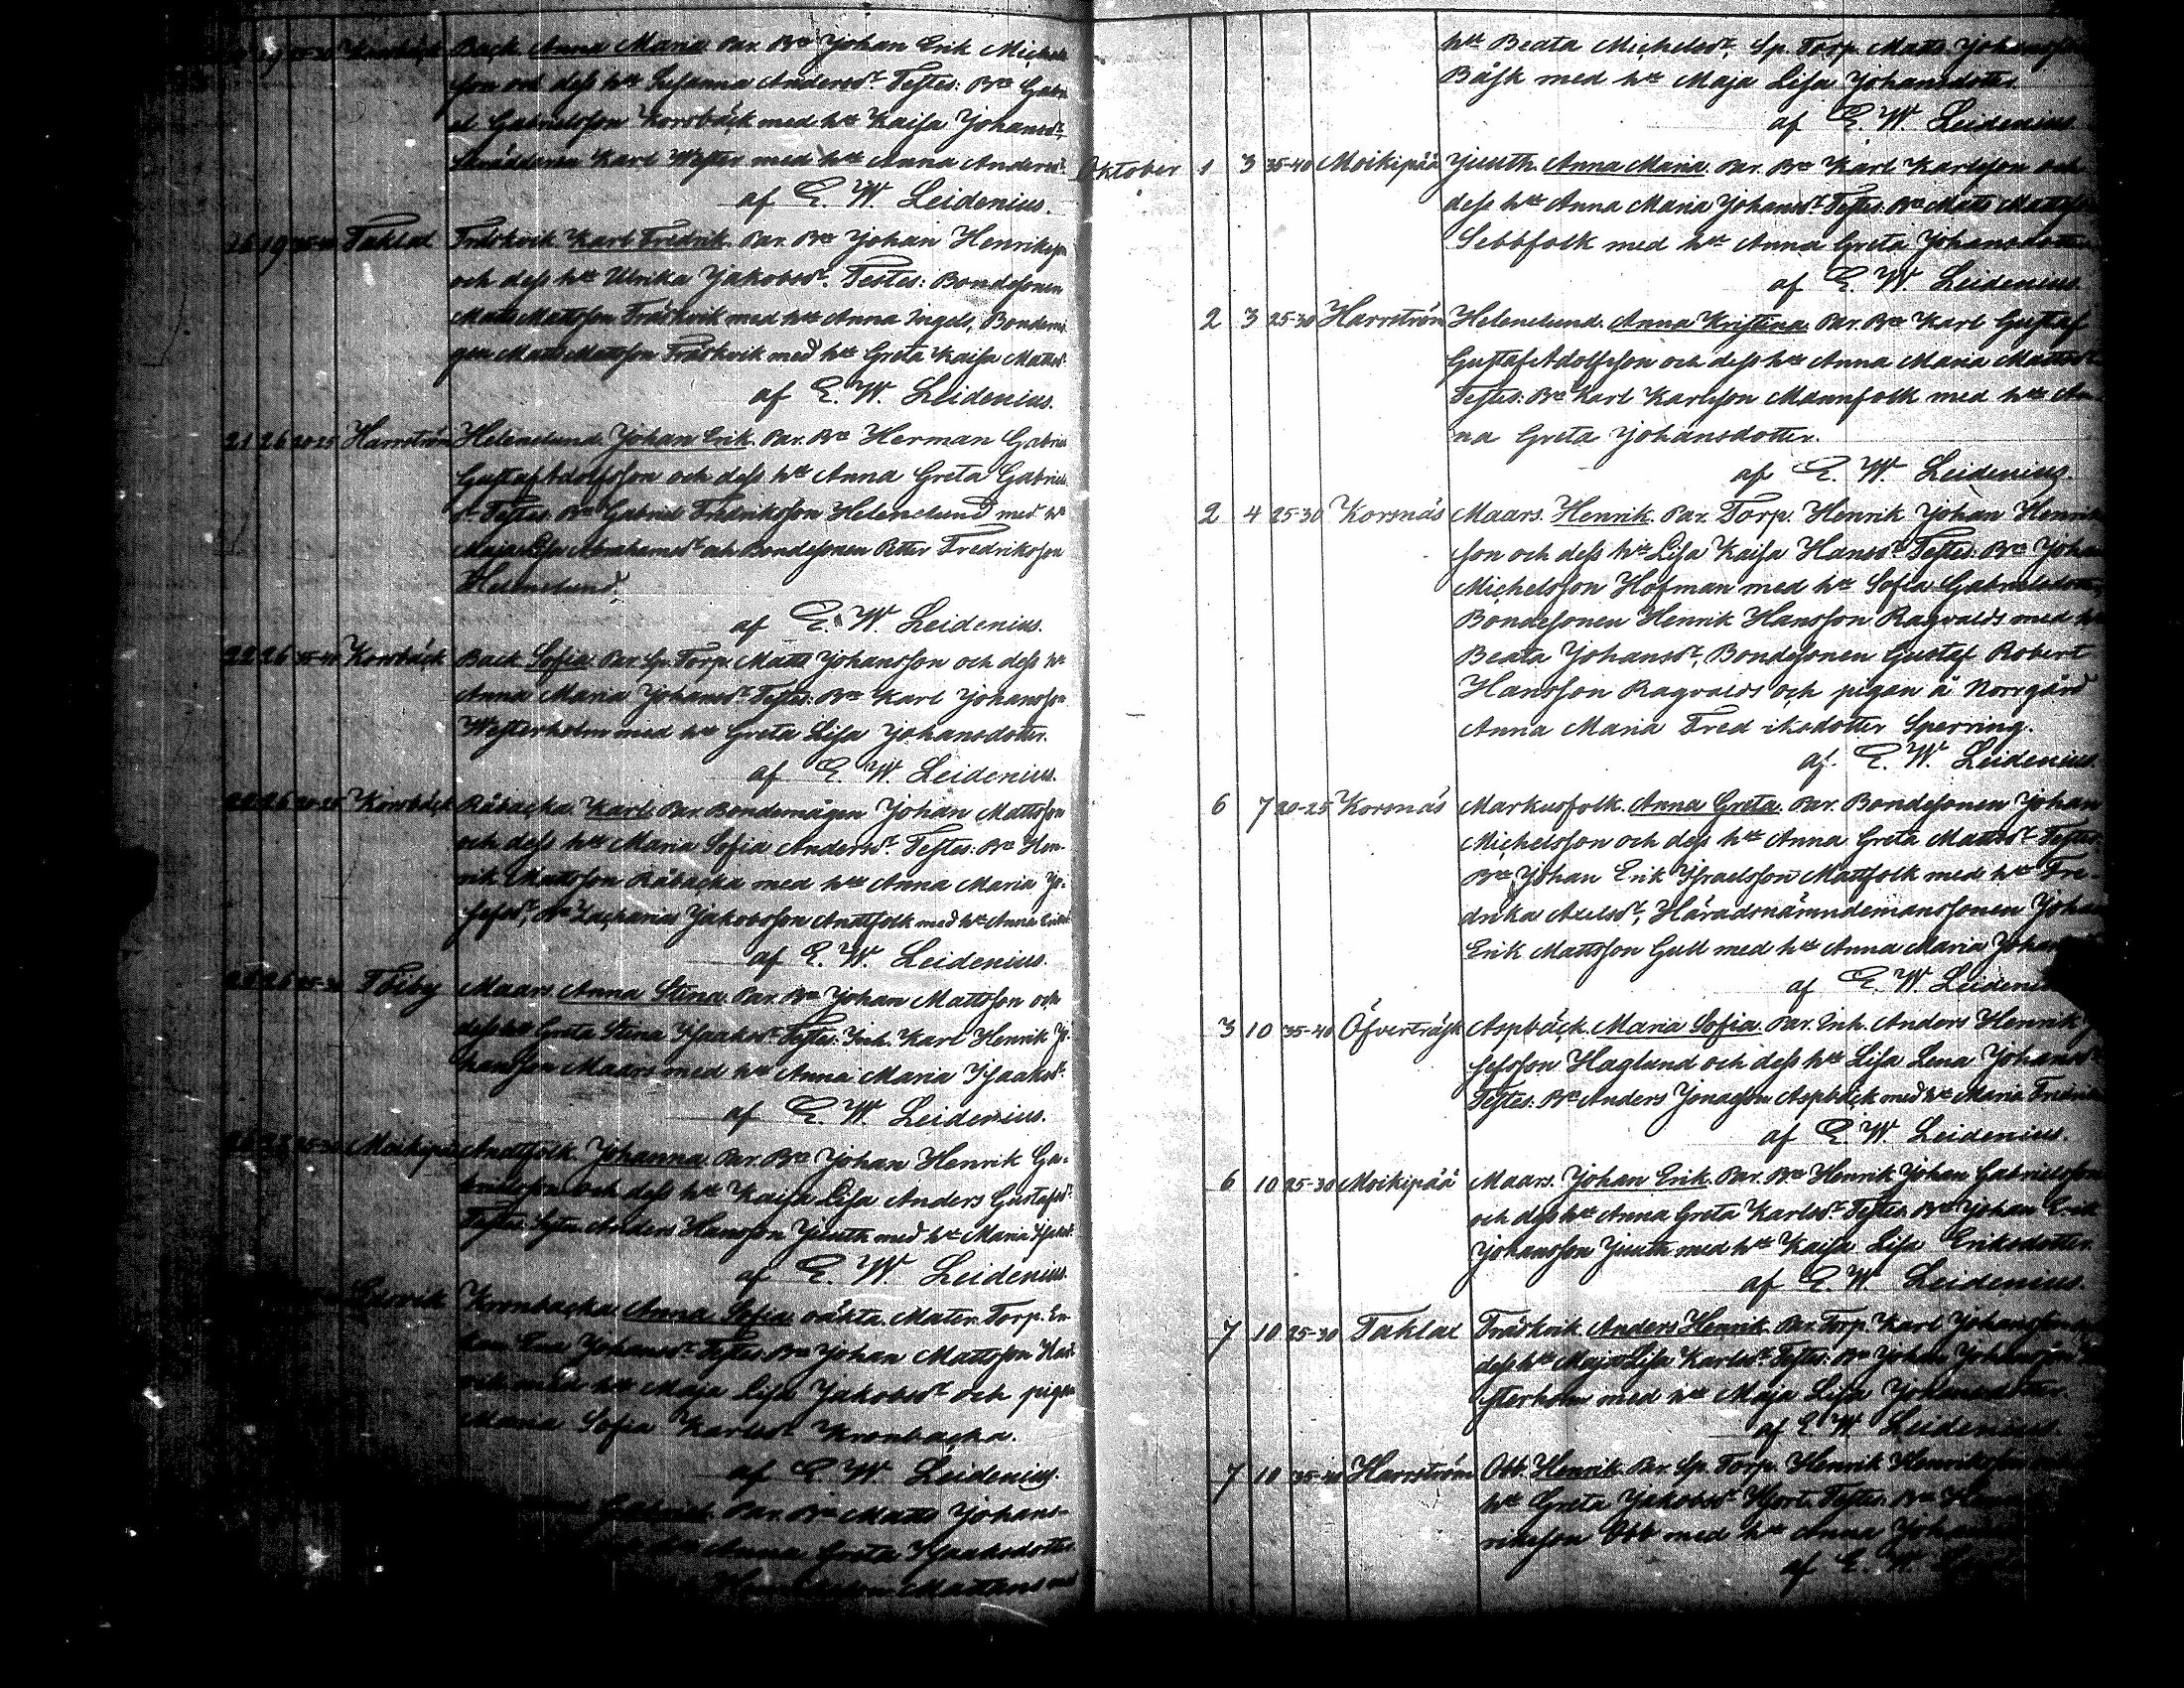 19 25-30 Korsbäck Back Anna Maria Par. Bn Johan Erik Michels
son och dess hu Susanna Andersdr Testes: Bn Gabri
el Gabrielsson Korsbäck med hu Kaisa Johansdr,
Karl Wester med hu Anna Andersdr
af E. W. Leidenius.
19 Taklax Träskvik Karl Fredrik Par. Bn Johan Henriksson
och dess hu Ulrika Jakobsdr. Testes: Bondesonen
Matts Mattsson Träskvik med hu Anna Ingels, Bondemå
gen Matts Mattsson Träskvik med hu Greta Kaisa Mattsdr
af E. W. Leidenius.
21 26 20-25 Harrström Helenelund Johan Erik Par. Bn Herman Gabriel
Gustaf Adolfsson och dess hu Anna Greta Gabriels
dr Testes Bn Gabriel Fredriksson Helenelund med hu
Maja Lisa Abrahamsdr och Bondesonen Petter Fredriksson
Helenelund.
af E. W. Leidenius.
22 26 35-40 Korsbäck Back Sofia Par. Sp. Torp. Matts Johansson och dess hu
Anna Maria Johansdr Testes: Bn Karl Johansson
Westerholm med hu Greta Lisa Johansdotter.
af E. W. Leidenius.
22 26 20-25 Korsbäck Råbacka Karl Par. Bondemågen Johan Mattsson
och dess hu Maria Sofia Andersdr. Testes: Bn Hen-
rik Mattsson Råbacka med hu Anna Maria Jo-
sefsdr, Bn Zacharias Jakobsson Anttfolk med hu Anna
af E. W. Leidenius.
26 25-30 Töiby Maars Anna Stina Par. Bn Johan Mattsson och
dess hu Greta Stina Isaaksdr Testes: Inh. Karl Henrik Jo-
hansson Maars med hu Anna Maria Isaaksdr.
af E. W. Leidenius.
Moikipää Anttfolk Johanna Par. Bn Johan Henrik Ga-
brielsson och dess hu Kaisa Lisa Anders Gustafsdr
Testes Anders Hansson Juuth med hu Maria
af E. W. Leidenius.
Kronbacka Anna Sofia oäkta. Mater. Torp. En
kan Eva Johansdr Testes: Bn Johan Mattsson
med hu Maja Lisa Jakobsdr och pigan
Maria Sofia Karlsdr Kronbacka.
af E. W. Leidenius.
Gabriel Par. Bn Matts Johans-
Anna Greta Isaaksdotter
Mattans med
hu Beata Michelsdr, Sp. Torp. Matts Johansson
Båsk med hu Maja Lisa Johansdotter.
af E. W. Leidenius.
Oktober 1 3 35-40 Moikipää Juuth. Anna Maria. Par. Bn Karl Karlsson och
dess hu Anna Maria Johansdr Testes: Bn Matts Mattsson
Sebbfolk med hu Anna Greta Johansdotter.
af E. W. Leidenius.
2 3 25-30 Harrström Helenelund. Anna Kristina Par. Bn Karl Gustaf
Gustaf Adolfsson och dess hu Anna Maria Mattsdr
Testes: Bn Karl Karlsson Mannfolk med hu An
na Greta Johansdotter.
af E. W. Leidenius.
2 4 25-30 Korsnäs Maars. Henrik. Par. Torp. Henrik Johan Henrik
son och dess hu Lisa Kaisa Hansdr Testes: Bn Johan
Michelsson Hofman med hu Sofia Gabrielsdotter,
Bondesonen Henrik Hansson Ragvalds med hu
Beata Johansdr, Bondesonen Gustaf Robert
Hansson Ragvalds och pigan å Norrgård
Anna Maria Fredriksdotter Sperring.
af. E. W. Leidenius
6 7 20-25 Korsnäs Markusfolk. Anna Greta. Par. Bondesonen Johan
Michelsson och dess hu Anna Greta Mattsdr Testes:
Bn Johan Erik Israelsson Mattfolk med hu Fre-
drika Axelsdr, Häradsnämndemanssonen Johan
Erik Mattsson Gull med hu Anna Maria Johan
af E. W. Leidenius
3 10 35-40 Öfverträsk Aspbäck. Maria Sofia. Par. Inh. Anders Henrik Jo
sefsson Haglund och dess hu Lisa Lena Johansdr
Testes: Bn Anders Jonasson Aspbäck med hu Maria Fredriks
af E. W. Leidenius.
6 10 25-30 Moikipää Maars. Johan Erik. Par. Bn Henrik Johan Gabrielsson
och dess hu Anna Greta Karlsdr Testes: Bn Johan Erik
Johansson Juuth med hu Kaisa Lisa Eriksdotter.
af E. W. Leidenius.
7 10 25-30 Taklax Träskvik. Anders Henrik. Par. Torp. Karl Johansson
dess hu Maja Lisa Karlsdr. Testes: Bn Johan Johansson
sterholm med hu Maja Lisa Johansdotter
af E. W. Leidenius.
7 10 35-40 Harrström Obb. Henrik. Par. Sp. Torp. Henrik Henriksson
hu Greta Jakobsdr Hjort. Testes: Bn Hen
riksson Obb med hu Anna Johans
af E. W.